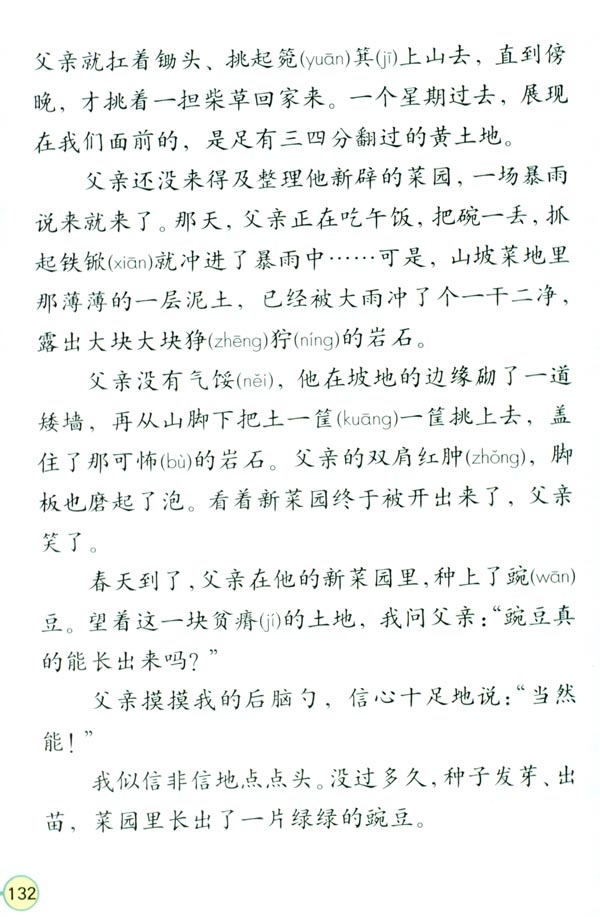 父亲就扛着锄头、挑起箢(yuān)箕(jī)上山去，直到傍
晚，才挑着一担柴草回家来。一个星期过去，展现
在我们面前的，是足有三四分翻过的黄土地。
父亲还没来得及整理他新辟的菜园，一场暴雨
说来就来了。那天，父亲正在吃午饭，把碗一丢，抓
起铁锨(xiān)就冲进了暴雨中……可是，山坡菜地里
那薄薄的一层泥土，已经被大雨冲了个一干二净，
露出大块大块狰(zhēng)狞(níng)的岩石。
父亲没有气馁(něi)，他在坡地的边缘砌了一道
矮墙，再从山脚下把土一筐(kuāng)一筐挑上去，盖
住了那可怖(bù)的岩石。父亲的双肩红肿(zhǒng)，脚
板也磨起了泡。看着新菜园终于被开出来了，父亲
笑了。
春天到了，父亲在他的新菜园里，种上了豌(wān)
豆。望着这一块贫瘠(jí)的土地，我问父亲：“豌豆真
的能长出来吗？”
父亲摸摸我的后脑勺，信心十足地说：“当然
能！”
我似信非信地点点头。没过多久，种子发芽、出
苗，菜园里长出了一片绿绿的豌豆。
132